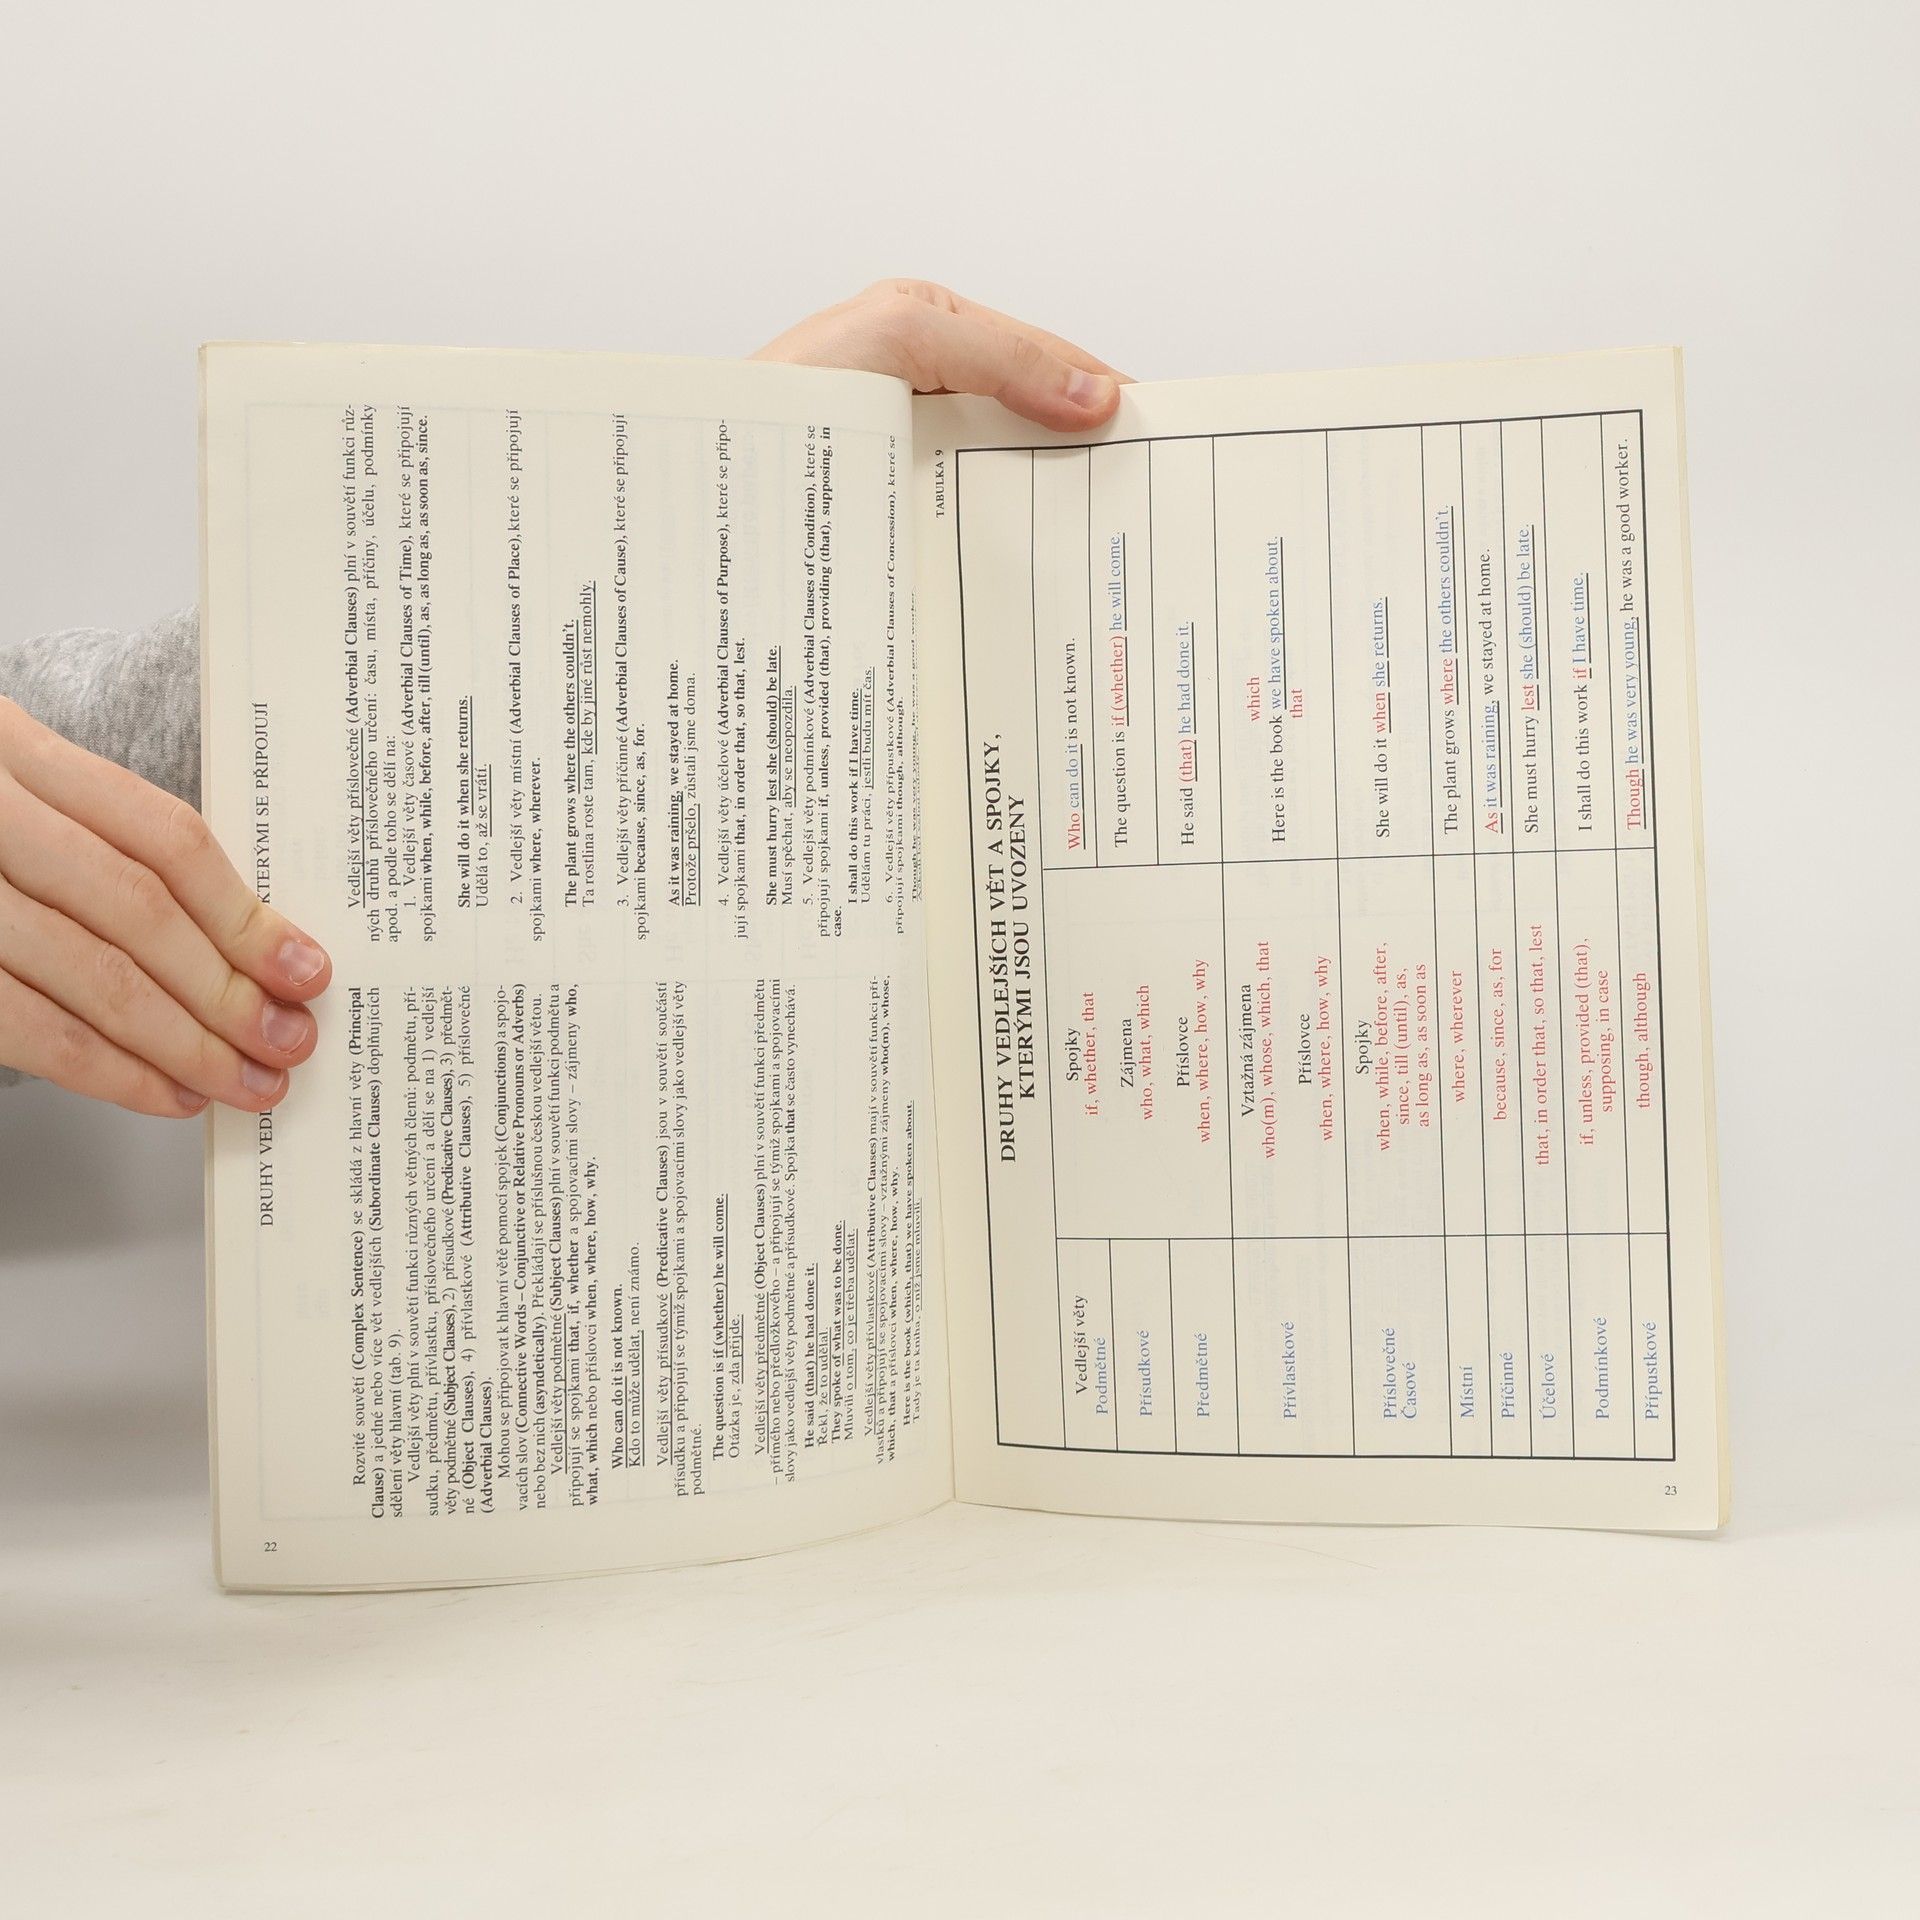 22
DRUHY VEDL
KTERÝMI SE PŘIPOJUJÍ
Rozvité souvětí (Complex Sentence) se skládá z hlavní věty (Principal
Clause) a jedné nebo více vět vedlejších (Subordinate Clauses) doplňujících
sdělení věty hlavní (tab. 9).
Vedlejší věty plní v souvětí funkci různých větných členů: podmětu, pří-
sudku, předmětu, přívlastku, příslovečného určení a dělí se na 1) vedlejší
věty podmětné (Subject Clauses), 2) přísudkové (Predicative Clauses), 3) předmět-
né (Object Clauses), 4) přívlastkové (Attributive Clauses), 5) příslovečné
(Adverbial Clauses).
Mohou se připojovat k hlavní větě pomocí spojek (Conjunctions) a spojo-
vacích slov (Connective Words – Conjunctive or Relative Pronouns or Adverbs)
nebo bez nich (asyndetically). Překládají se příslušnou českou vedlejší větou.
Vedlejší věty podmětné (Subject Clauses) plní v souvětí funkci podmětu a
připojují se spojkami that, if, whether a spojovacími slovy – zájmeny who,
what, which nebo příslovci when, where, how, why.
Who can do it is not known.
Kdo to může udělat, není známo.
Vedlejší věty přísudkové (Predicative Clauses) jsou v souvětí součástí
přísudku a připojují se týmiž spojkami a spojovacími slovy jako vedlejší věty
podmětné.
The question is if (whether) he will come.
Otázka je, zda přijde.
Vedlejší věty předmětné (Object Clauses) plní v souvětí funkci předmětu
– přímého nebo předložkového – a připojují se týmiž spojkami a spojovacími
slovy jako vedlejší věty podmětné a přísudkové. Spojka that se často vynechává.
He said (that) he had done it.
Řekl, že to udělal.
They spoke of what was to be done.
Mluvili o tom, co je třeba udělat.
Vedlejší věty přívlastkové (Attributive Clauses) mají v souvětí funkci pří-
vlastků a připojují se spojovacími slovy – vztažnými zájmeny who(m), whose,
which, that a příslovci when, where, how, why.
Here is the book (which, that) we have spoken about.
Tady je ta kniha, o níž jsme mluvili.
Vedlejší věty příslovečné (Adverbial Clauses) plní v souvětí funkci růz-
ných druhů příslovečného určení: času, místa, příčiny, účelu, podmínky
apod. a podle toho se dělí na:
1. Vedlejší věty časové (Adverbial Clauses of Time), které se připojují
spojkami when, while, before, after, till (until), as, as long as, as soon as, since.
She will do it when she returns.
Udělá to, až se vrátí.
2. Vedlejší věty místní (Adverbial Clauses of Place), které se připojují
spojkami where, wherever.
The plant grows where the others couldn't.
Ta rostlina roste tam, kde by jiné růst nemohly.
3. Vedlejší věty příčinné (Adverbial Clauses of Cause), které se připojují
spojkami because, since, as, for.
As it was raining, we stayed at home.
Protože pršelo, zůstali jsme doma.
4. Vedlejší věty účelové (Adverbial Clauses of Purpose), které se připo-
jují spojkami that, in order that, so that, lest.
She must hurry lest she (should) be late.
Musí spěchat, aby se neopozdila.
5. Vedlejší věty podmínkové (Adverbial Clauses of Condition), které se
připojují spojkami if, unless, provided (that), providing (that), supposing, in
case.
I shall do this work if I have time.
Udělám tu práci, jestli budu mít čas.
6. Vedlejší věty přípustkové (Adverbial Clauses of Concession), které se
připojují spojkami though, although.
Though he was very young, he was a good worker.
TABULKA 9
DRUHY VEDLEJŠÍCH VĚT A SPOJKY,
KTERÝMI JSOU UVOZENY
Vedlejší věty
Podmětné
Spojky
if, whether, that
Who can do it is not known.
Přísudkové
Zájmena
who, what, which
The question is if (whether) he will come.
Předmětné
Příslovce
when, where, how, why
He said (that) he had done it.
Přívlastkové
Vztažná zájmena
who(m), whose, which, that
Příslovce
when, where, how, why
which
Here is the book we have spoken about.
that
Příslovečné
Časové
Spojky
when, while, before, after,
since, till (until), as,
as long as, as soon as
She will do it when she returns.
Místní
where, wherever
The plant grows where the others couldn't.
Příčinné
because, since, as, for
As it was raining, we stayed at home.
Účelové
that, in order that, so that, lest
She must hurry lest she (should) be late.
Podmínkové
if, unless, provided (that),
supposing, in case
I shall do this work if I have time.
Přípustkové
though, although
Though he was very young, he was a good worker.
23